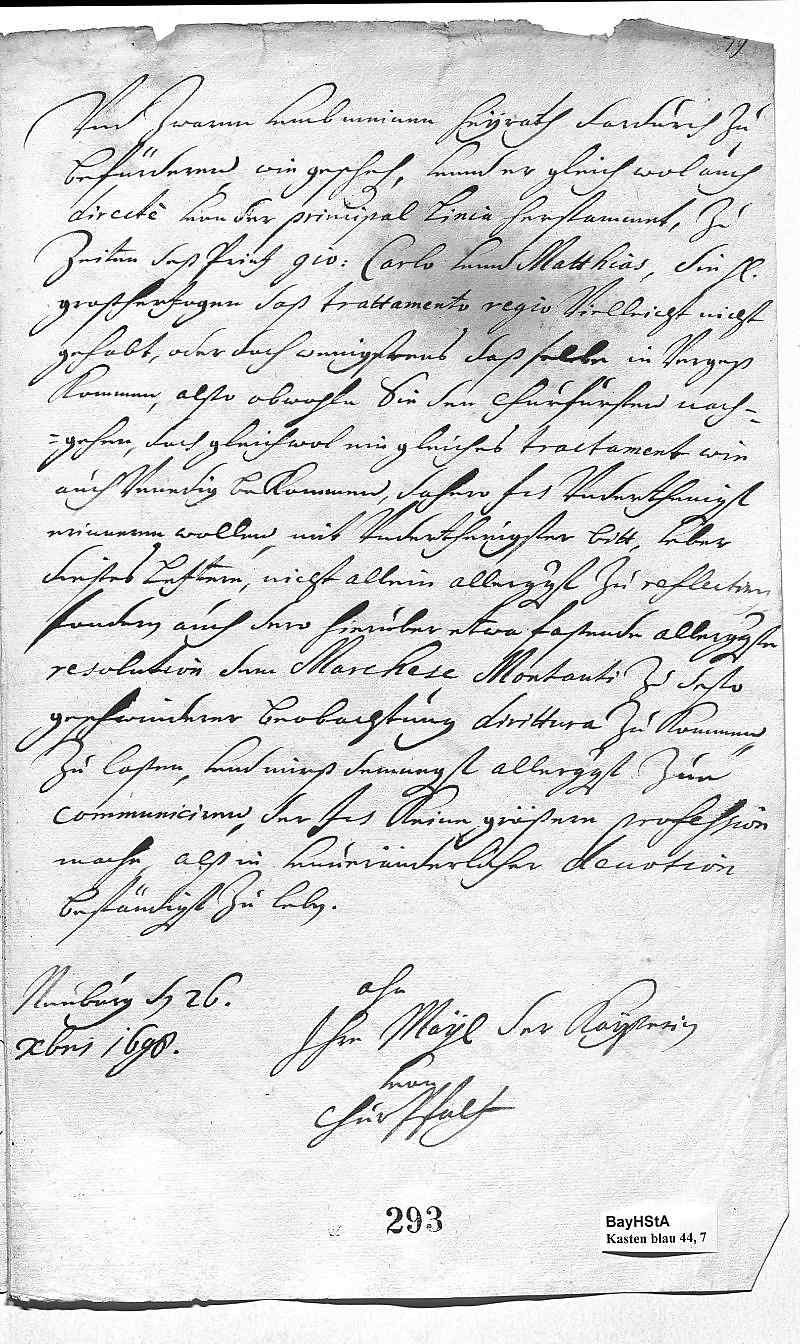 79
Und zwarn umb meinen heyrath dardurch zu
befürderen, wie geschehen, unnd er gleich wol auch
directè von der principal Linia herstammet, zu
Zeiten deß Prinz gio: Carlo unnd Matthias, die H.
großherzogen daß trattamento regio Vielleicht nicht
gehabt, oder doch wenigstens daßselbe in Vergeß
kommen, also obwohle Sie den Churfürsten nach=
=gehen, doch gleichwol ein gleiches tractament wie
auch Venedig bekommen, dahero ich Underthenigst
erinneren wollen, mit Underthenigster bitt, über
dieses Letstere, nicht allein allergdst zu reflectirn
sondern auch dero hierüber etwa fassende allergdste
resolution dem Marchese Montauti zu desto
geschwinderer beobachtung dirittura zu kommen
zu lassen, und mirß demnegst allergdst zue
communiciren, der ich keine größere profession
mache, alß in unveränderlicher devotion
beständigst zu leben.
Neuburg den 26.
xbris 1698.
ahn
Ihre Mayl der Kayserin
von
Churpfaltz
293
BayHStA
Kasten blau 44, 7